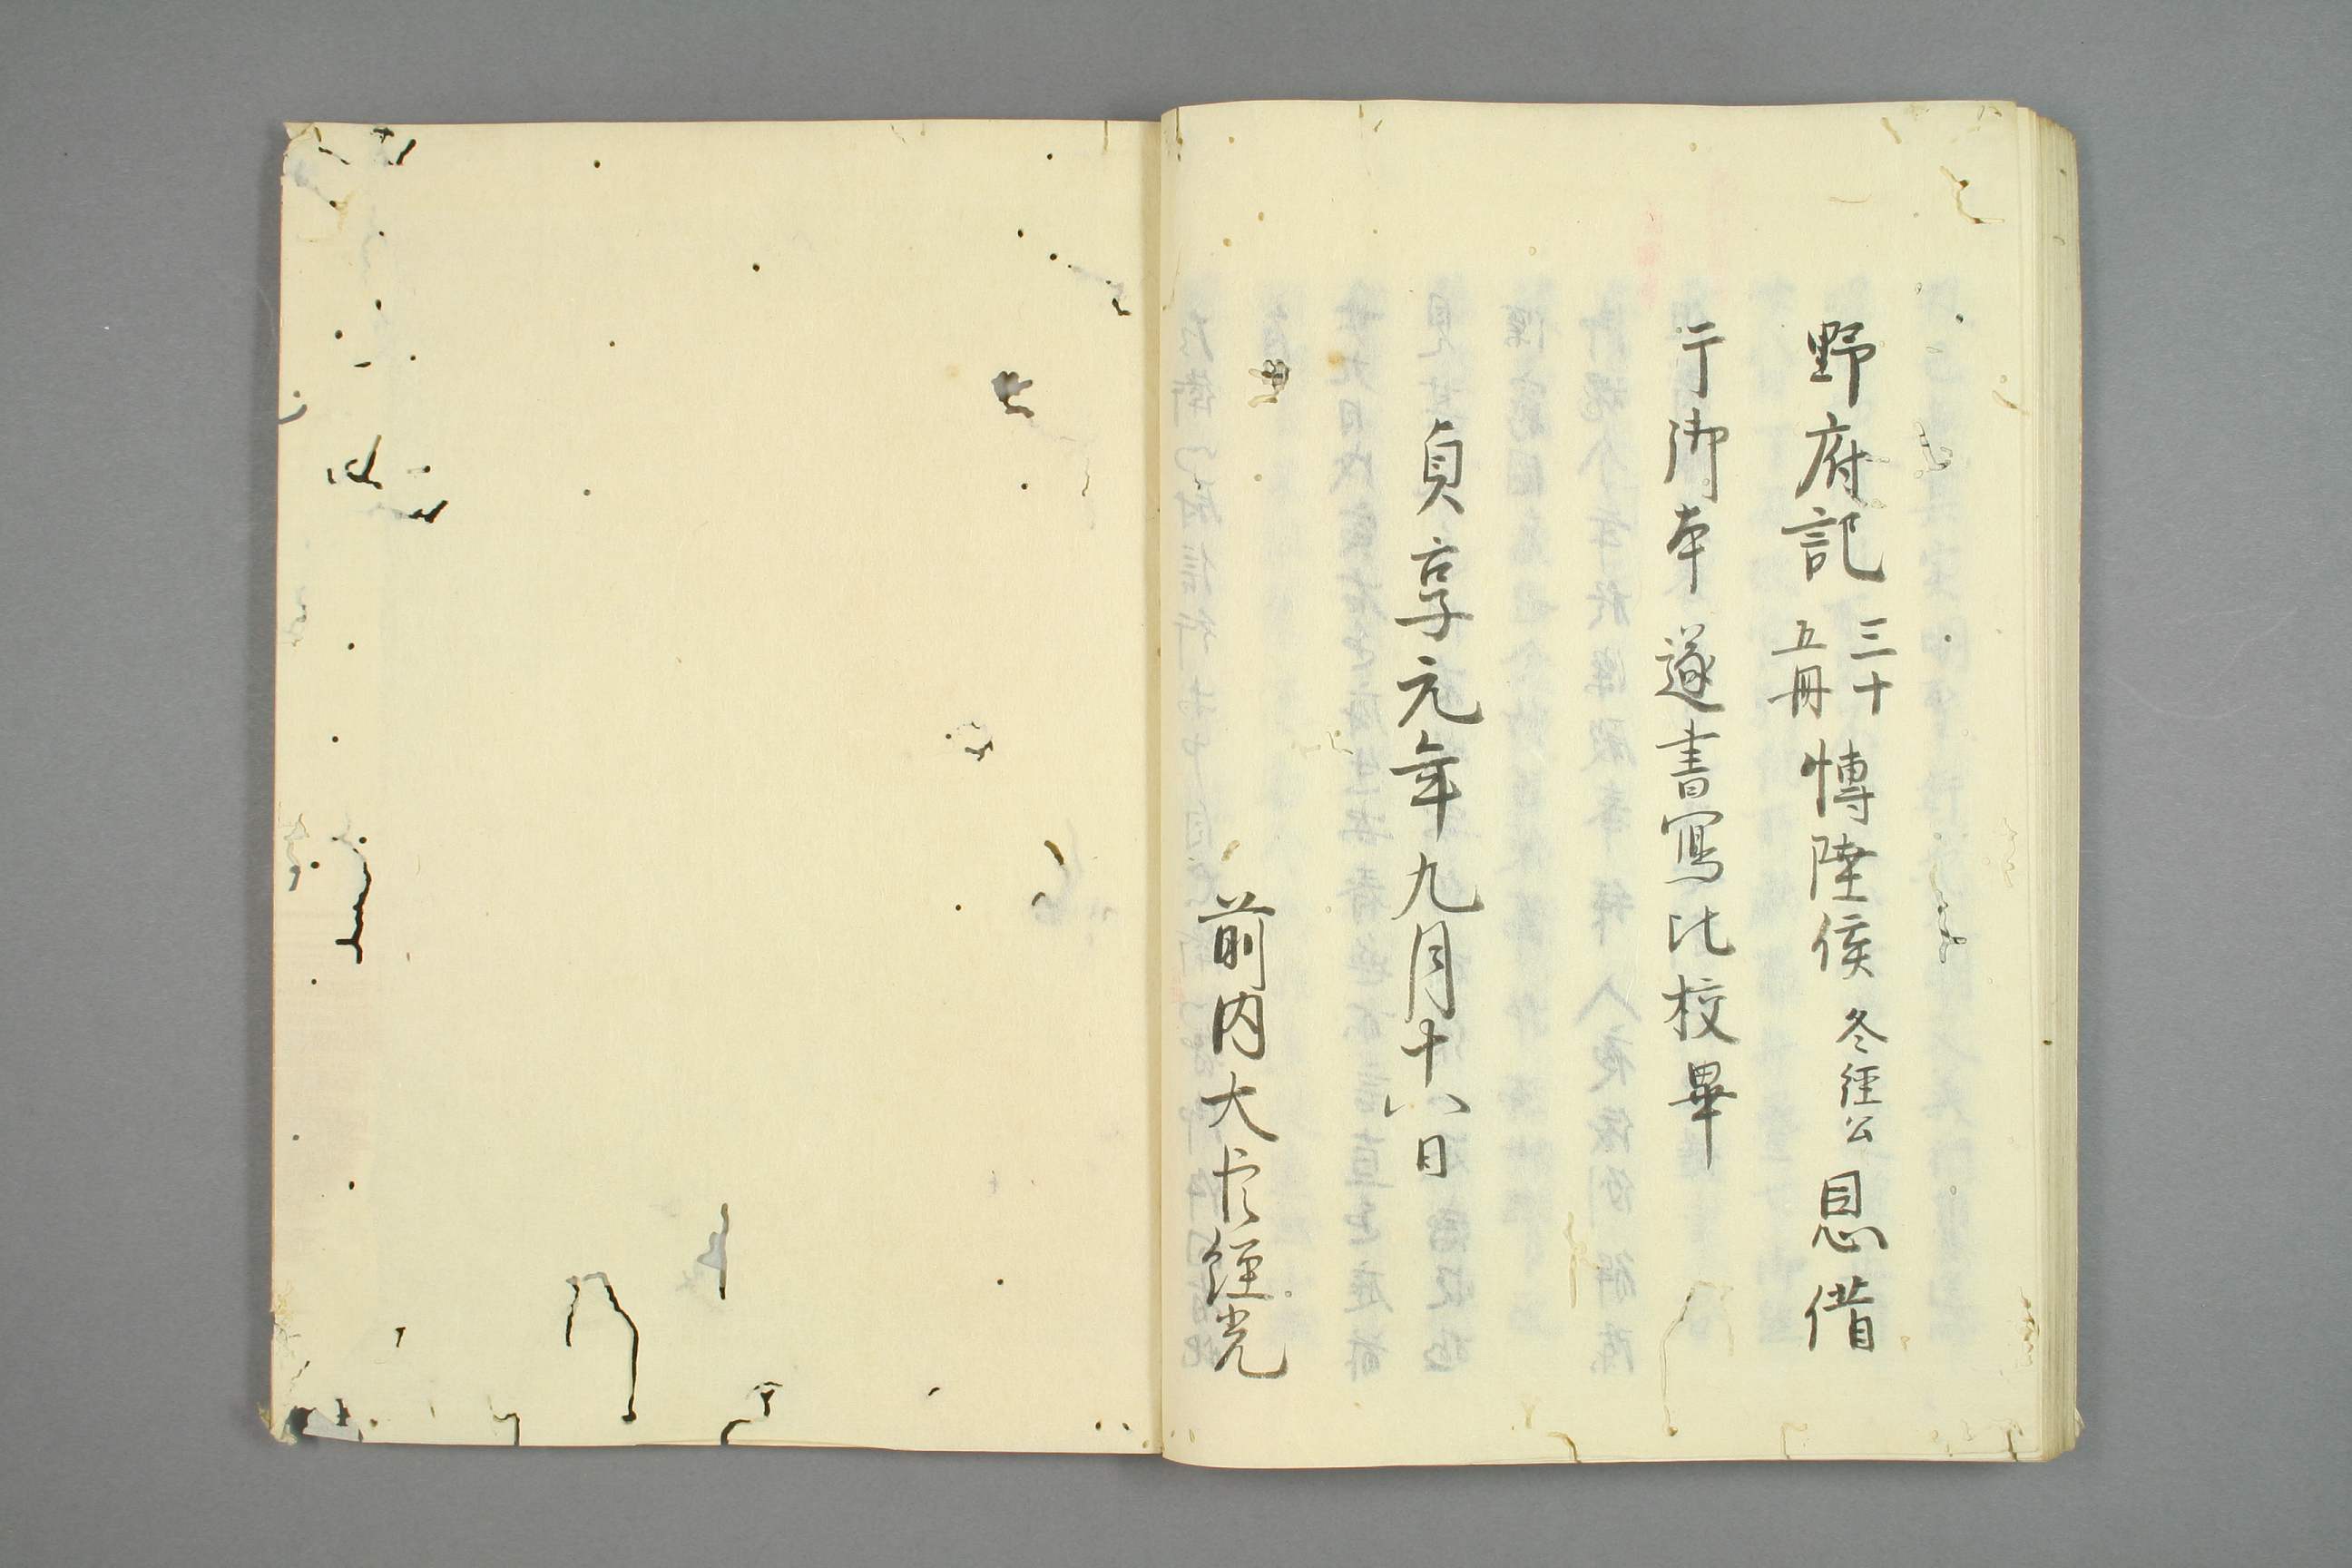 野府記三十五冊博陸侯冬経公恩借
于御本遂書寫比校畢
貞享元年九月十八日
前内大臣経光